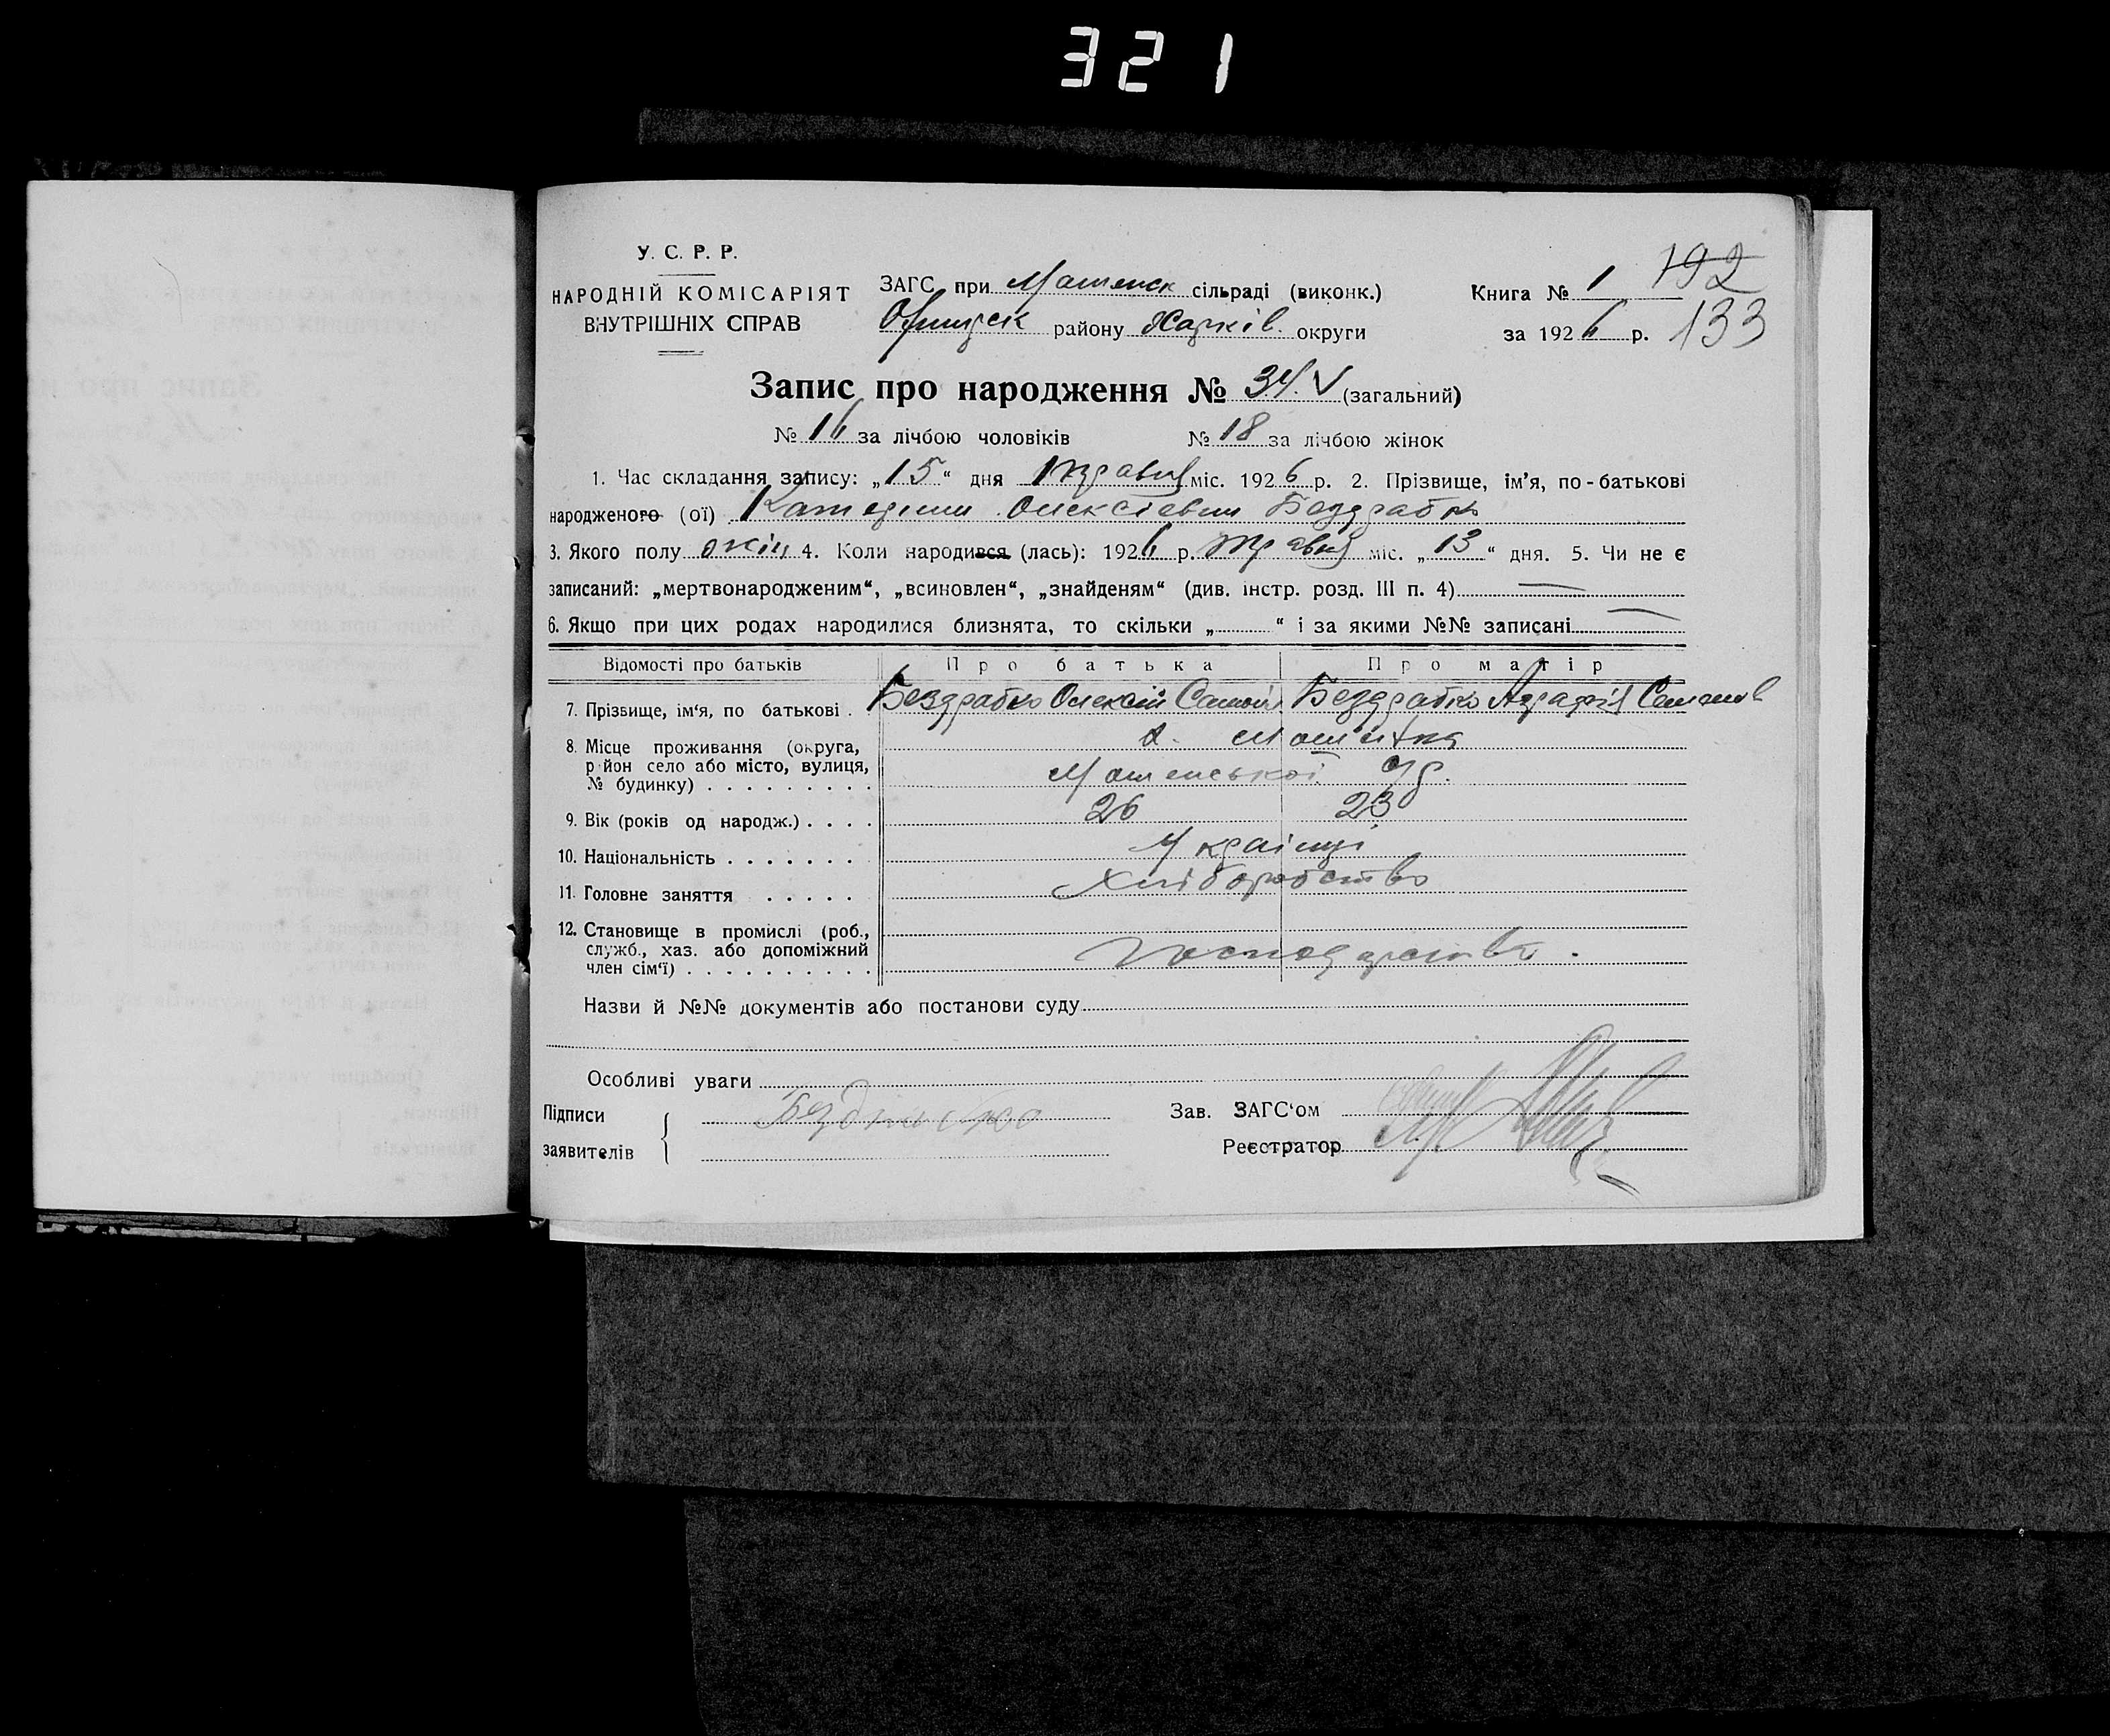 321
У. С. Р. Р.
НАРОДНІЙ КОМІСАРІЯТ
ВНУТРІШНІХ СПРАВ
ЗАГС при Машенск сільраді (виконк.)
району Харків. округи
Книга № 1 192
за 1926 р. 133
Запис про народження № 34. V (загальний)
№ 16 за лічбою чоловіків № 18 за лічбою жінок
1. Час складання запису: „15“ дня травня міс. 1926 р. 2. Прізвище, ім'я, по-батькові
народженого (ої) Катерини Олексіевни Бездрабко
3. Якого полу жін 4. Коли народився (лась): 1926 р. травня міс. „13“ дня. 5. Чи не є
записаний: „мертвонародженим“, „всиновлен“, „знайденям“ (див. інстр. розд. III п. 4) —
6. Якщо при цих родах народилися близнята, то скільки „ “ і за якими №№ записані —
Відомості про батьків Про батька Про матір
7. Прізвище, ім'я, по батькові . Бездрабко Олексій Самой Бездрабко
8. Місце проживання (округа,
р-йон село або місто, вулиця,
№ будинку) . . . . . . . . . Машенської
9. Вік (років од народж.) . . . . 26 23
10. Національність . . . . . . . . Українці
11. Головне заняття . . . . . Хліборобство
12. Становище в промислі (роб.,
служб., хаз. або допоміжний
член сім'ї) . . . . . . . . . .
Назви й №№ документів або постанови суду
Особливі уваги
Підписи
заявителів
Бездрабко
Зав. ЗАГС'ом
Реєстратор